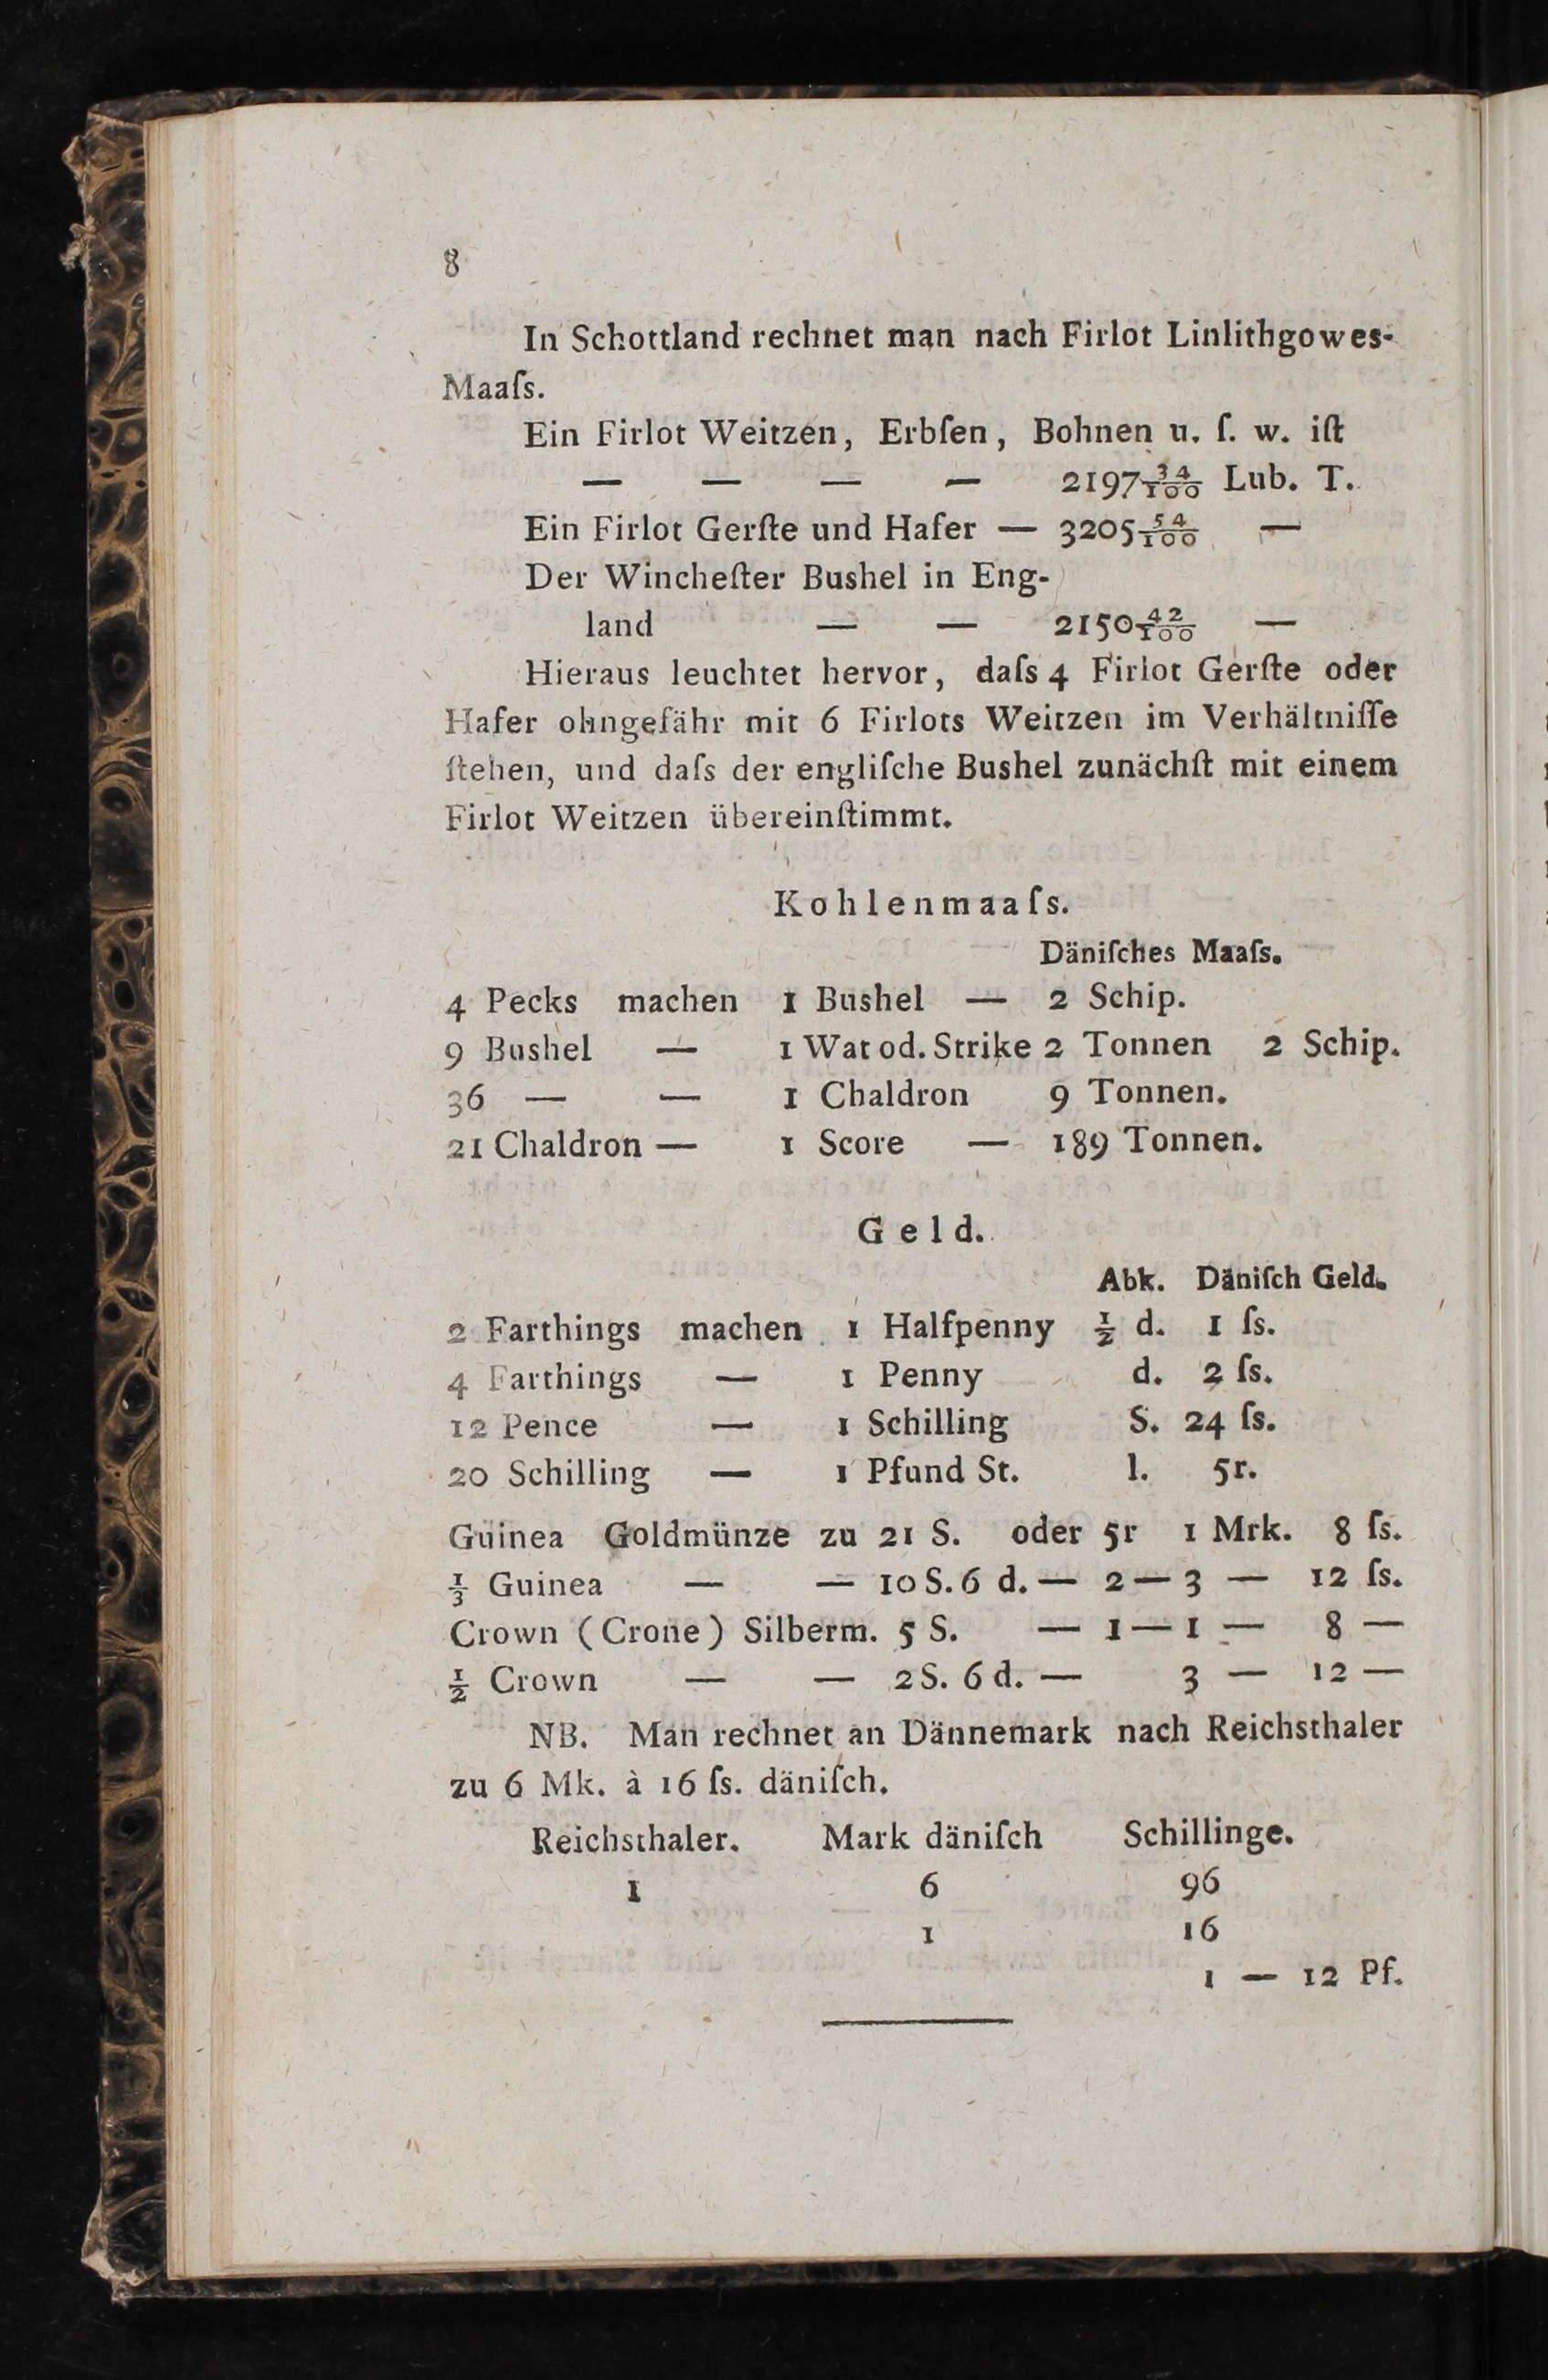 8
In Schottland rechnet man nach Firlot Linlithgowes-
Maaſs.
Ein Firlot Weitzen, Erbſen, Bohnen u. ſ. w. iſt
— — — — 2197 34/100 Lub. T.
Ein Firlot Gerſte und Hafer — 3205 54/100 —
Der Wincheſter Bushel in Eng-
land — — 2150 42/100 —
Hieraus leuchtet hervor, daſs 4 Firlot Gerſte oder
Hafer ohngefähr mit 6 Firlots Weitzen im Verhältniſſe
ſtehen, und daſs der engliſche Bushel zunächſt mit einem
Firlot Weitzen übereinſtimmt.
Kohlenmaaſs.
Däniſches Maaſs.
4 Pecks machen 1 Bushel — 2 Schip.
9 Bushel — 1 Wat od. Strike 2 Tonnen 2 Schip.
36 — — 1 Chaldron 9 Tonnen.
21 Chaldron — 1 Score — 189 Tonnen.
Geld.
Abk. Däniſch Geld.
2 Farthings machen 1 Halfpenny ½ d. 1 ſs.
4 Farthings — 1 Penny d. 2 ſs.
12 Pence — 1 Schilling S. 24 ſs.
20 Schilling — 1 Pfund St. l. 5r.
Guinea Goldmünze zu 21 S. oder 5r 1 Mrk. 8 ſs.
⅓ Guinea — — 10 S. 6 d. — 2 — 3 — 12 ſs.
Crown (Crone) Silberm. 5 S. — 1 — 1 — 8 —
½ Crown — — 2 S. 6 d. — 3 — 12 —
NB. Man rechnet an Dännemark nach Reichsthaler
zu 6 Mk. à 16 ſs. däniſch.
Reichsthaler. Mark däniſch Schillinge.
1 6 96
1 16
1 — 12 Pf.